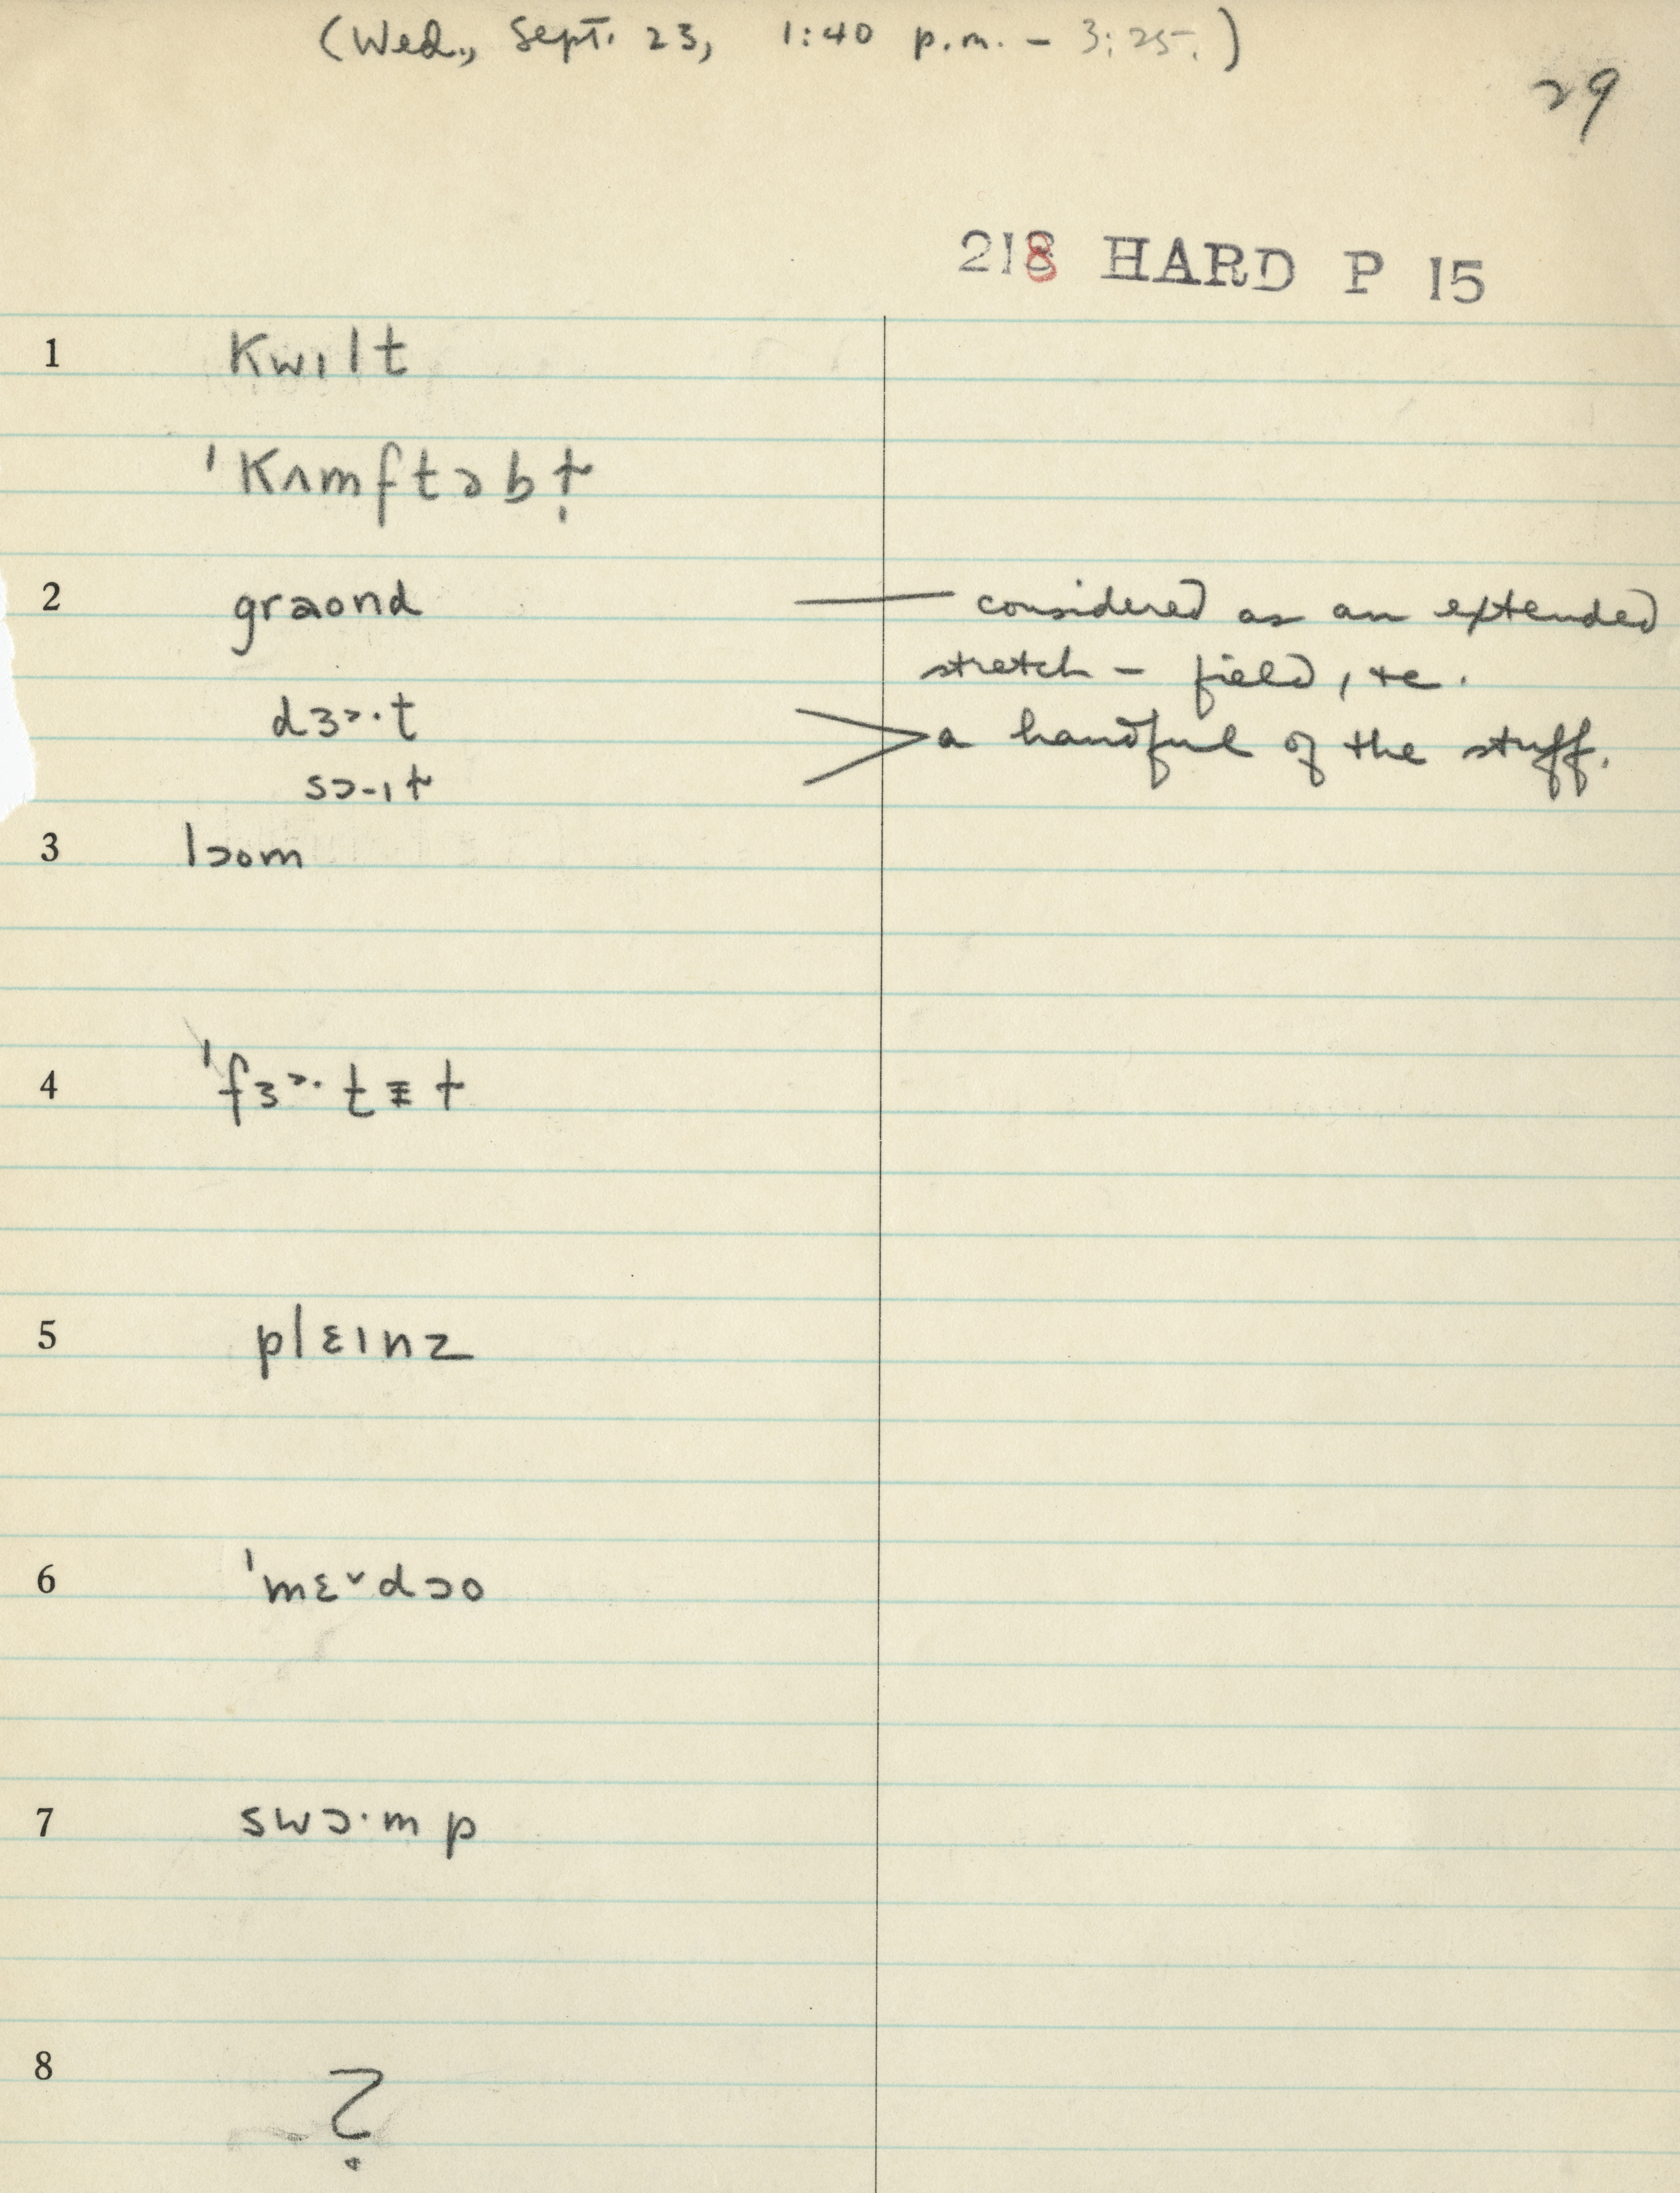 (Wed., Sept. 23, 1:40 p.m. – 3:25.)
29
218 HARD P 15
1 kwɪlt
ˈkʌmftəbɫ̩
2 graond — considered as an extended
stretch – field, etc.
dɜ˞·t > a handful of the stuff.
sɔ-ɪɫ
3 lɔom
4 ˈfɜ˞·tɪɫ
5 plɛɪnz
6 ˈmɛ˅dɔo
7 swɔ·mp
8 ?